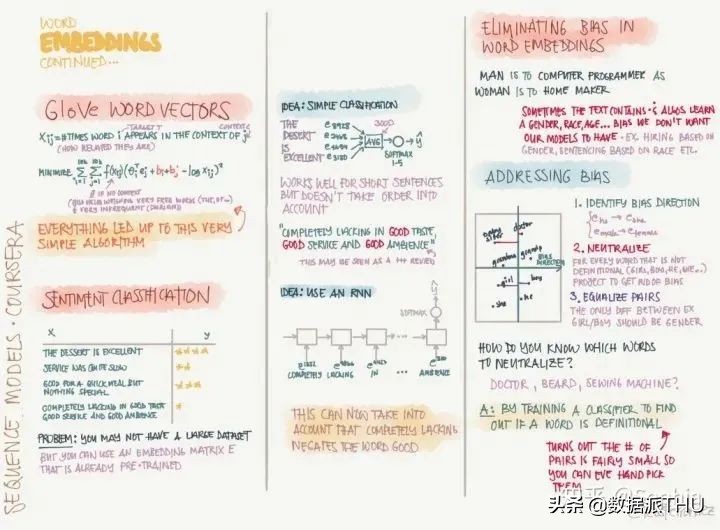 WORD
EMBEDDINGS
CONTINUED...
GloVe WORD VECTORS
Xij = #TIMES WORD i APPEARS IN THE CONTEXT OF j
TARGET
CONTEXT
(HOW RELATED THEY ARE)
MINIMIZE
EVERYTHING LED UP TO THIS VERY
SIMPLE ALGORITHM
SENTIMENT CLASSIFICATION
X
y
THE DESSERT IS EXCELLENT
SERVICE WAS QUITE SLOW
GOOD FOR A QUICK MEAL BUT
NOTHING SPECIAL
COMPLETELY LACKING IN GOOD TASTE
GOOD SERVICE AND GOOD AMBIENCE
PROBLEM: YOU MAY NOT HAVE A LARGE DATASET
BUT YOU CAN USE AN EMBEDDING MATRIX E
THAT IS ALREADY PRE-TRAINED
SEQUENCE MODELS · COURSERA
IDEA: SIMPLE CLASSIFICATION
THE
DESSERT
IS
EXCELLENT
300D
AVG
ŷ
SOFTMAX
1-5
WORKS WELL FOR SHORT SENTENCES
BUT DOESN'T TAKE ORDER INTO
ACCOUNT
"COMPLETELY LACKING IN GOOD TASTE,
GOOD SERVICE AND GOOD AMBIENCE"
THIS MAY BE SEEN AS A +++ REVIEW
IDEA: USE AN RNN
ŷ
SOFTMAX
COMPLETELY LACKING IN ... AMBIENCE
THIS CAN NOW TAKE INTO
ACCOUNT THAT COMPLETELY LACKING
NEGATES THE WORD GOOD
ELIMINATING BIAS IN
WORD EMBEDDINGS
MAN IS TO COMPUTER PROGRAMMER AS
WOMAN IS TO HOME MAKER
SOMETIMES THE TEXT CONTAINS & ALGOS LEARN
A GENDER, RACE, AGE... BIAS WE DON'T WANT
OUR MODELS TO HAVE · EX. HIRING BASED ON
GENDER, SENTENCING BASED ON RACE ETC.
ADDRESSING BIAS
doctor
grandma
BIAS
DIRECTION
girl
boy
she
he
1. IDENTIFY BIAS DIRECTION
2. NEUTRALIZE
FOR EVERY WORD THAT IS NOT
DEFINITIONAL (GIRL, BOY, HE, SHE...)
PROJECT TO GET RID OF BIAS
3. EQUALIZE PAIRS
THE ONLY DIFF BETWEEN EX
GIRL/BOY SHOULD BE GENDER
HOW DO YOU KNOW WHICH WORDS
TO NEUTRALIZE?
DOCTOR, BEARD, SEWING MACHINE?
A: BY TRAINING A CLASSIFIER TO FIND
OUT IF A WORD IS DEFINITIONAL
TURNS OUT THE # OF
PAIRS IS FAIRLY SMALL SO
YOU CAN EVE HAND PICK
THEM
头条 @数据派THU